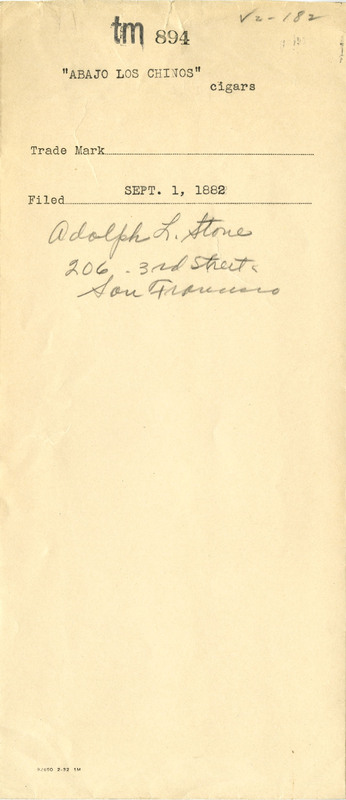 V2-182
tm 894
"ABAJO LOS CHINOS"
cigars
Trade Mark
Filed SEPT. 1, 1882
Adolph L. Stone
206 - 3rd Street
San Francisco
2-52 1M